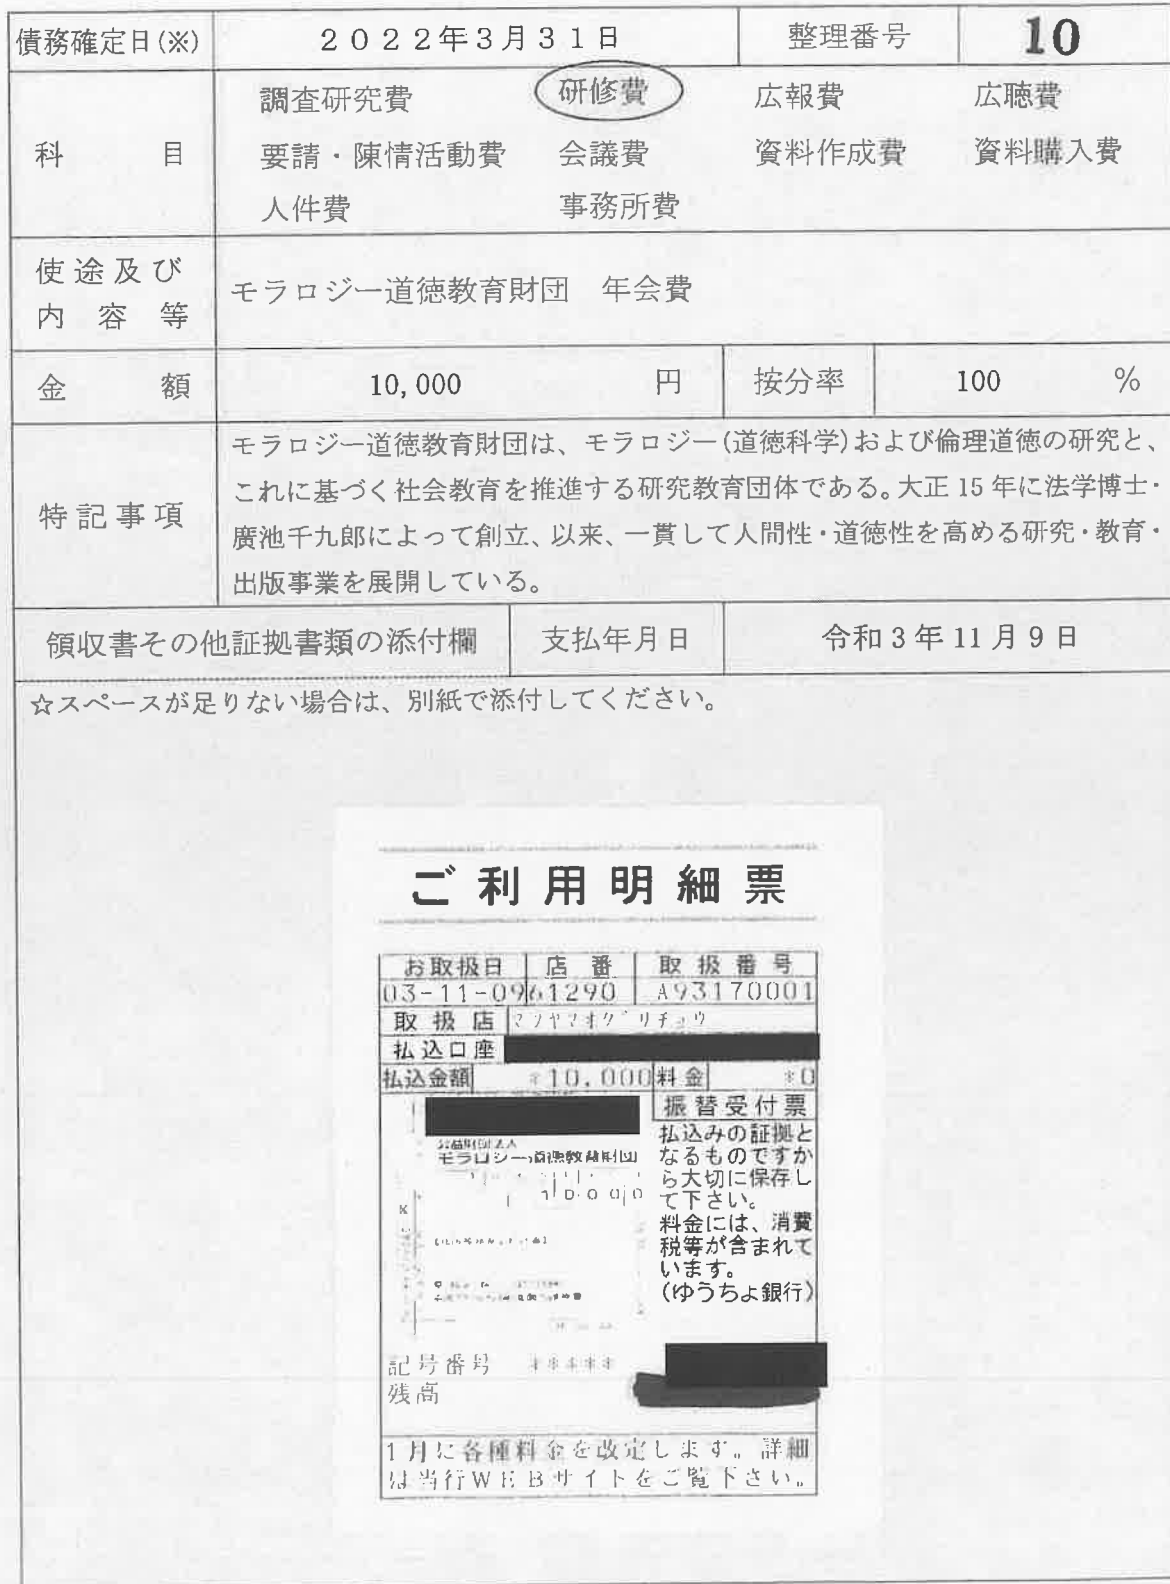 債務確定日(※) 2022年3月31日 整理番号 10
調査研究費 研修費 広報費 広聴費
科目 要請・陳情活動費 会議費 資料作成費 資料購入費
人件費 事務所費
使途及び
内容等
モラロジー道徳教育財団 年会費
金額 10,000 円 按分率 100 %
特記事項
モラロジー道徳教育財団は、モラロジー(道徳科学)および倫理道徳の研究と、
これに基づく社会教育を推進する研究教育団体である。大正15年に法学博士・
廣池千九郎によって創立、以来、一貫して人間性・道徳性を高める研究・教育・
出版事業を展開している。
領収書その他証拠書類の添付欄 支払年月日 令和3年11月9日
☆スペースが足りない場合は、別紙で添付してください。
ご利用明細票
お取扱日 店番 取扱番号
03-11-09 61290 A93170001
取扱店 マツヤマオグリチョウ
払込口座
払込金額 *10,000 料金 *0
振替受付票
公益財団法人
モラロジー道徳教育財団
10000
払込みの証拠と
なるものですか
ら大切に保存し
て下さい。
料金には、消費
税等が含まれて
います。
(ゆうちょ銀行)
記号番号 *****
残高
1月に各種料金を改定します。詳細
は当行WEBサイトをご覧下さい。